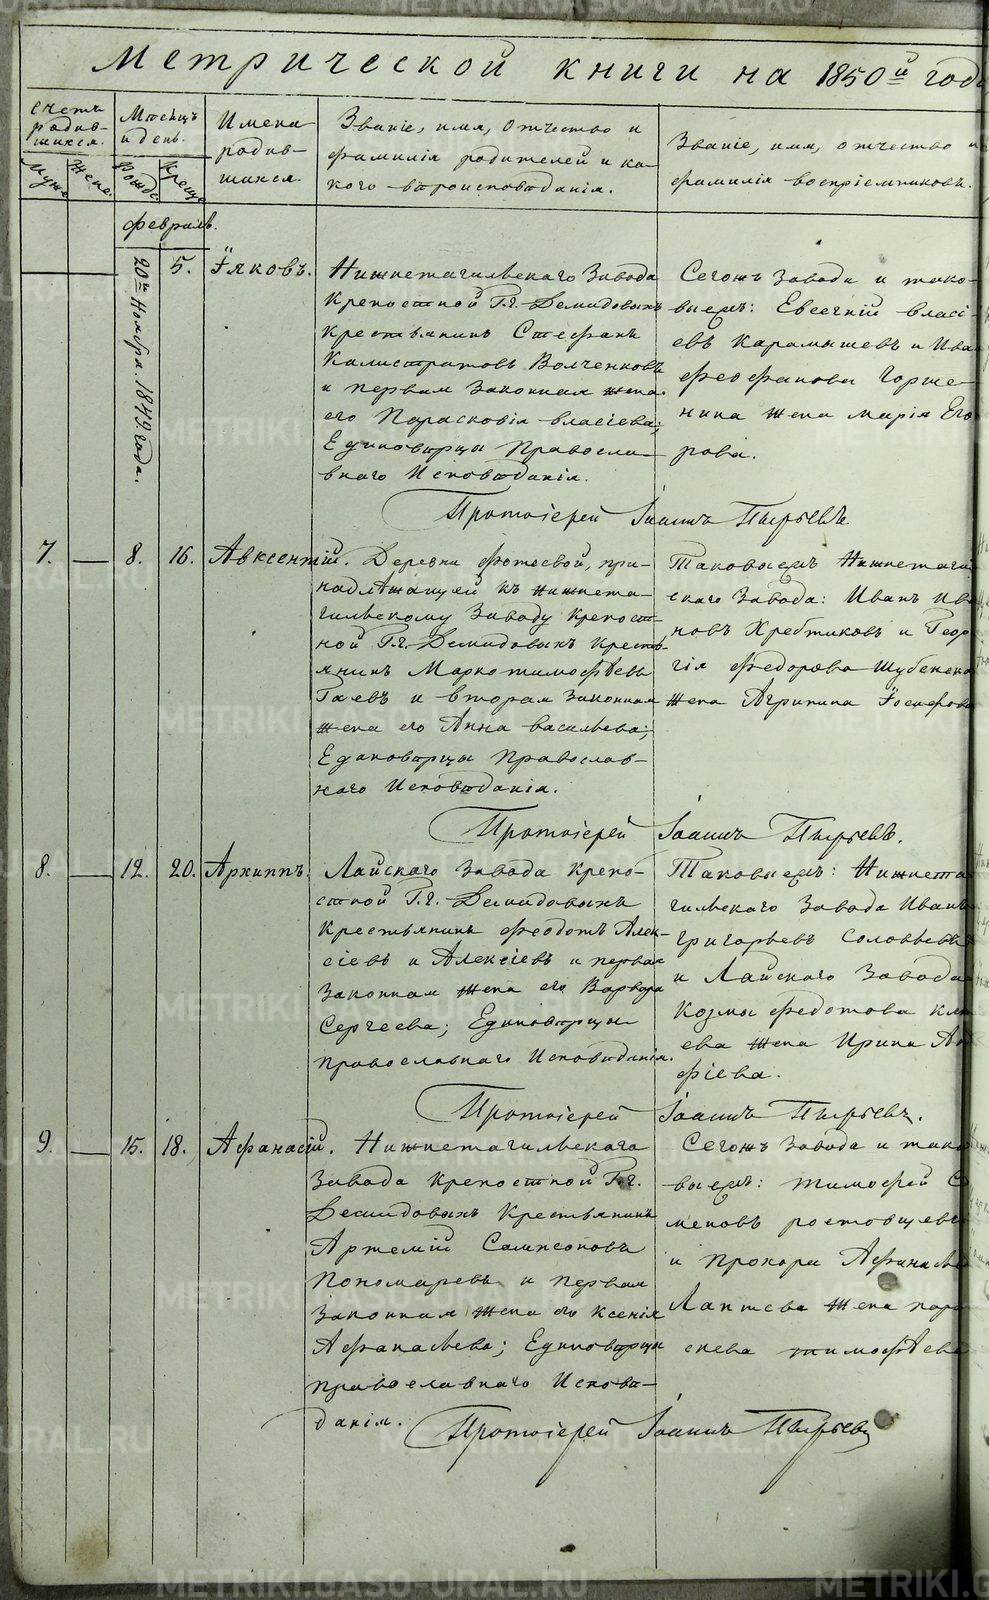 Метрической книги на 1850й год
Счетъ родив-шихся.
Муж. Жен.
Месяцъ и день.
Рожд. Крещ.
Имена родив-шихся.
Званіе, имя, отчество и
фамилія родителей и ка-
кого вѣроисповѣданія.
Званіе, имя, отчество и
фамилія воспріемниковъ.
Февраль.
20го Ноября 1849 года.
5.
Іяковъ.
Нижнетагильскаго Завода
крепостной Г.г. Демидовыхъ
крестьянинъ Стефанъ
Калистратовъ Волченковъ
и первая законная жена
его Парасковія Власіева;
Единоверцы Правосла-
внаго Исповѣданія.
Сегожъ Завода и тако-
выежъ: Евсегній Власі-
евъ Карамышевъ и Ива
Феофанова Горше-
нина жена Марія Его
рова.
Протоіерей Іоаннъ Пырьевъ.
7. — 8. 16. Авксентій.
Деревни Фотеевой, при-
надлѣжащей къ Нижнета-
гильскому Заводу крепост-
ной Г.г. Демидовыхъ кресть-
янинъ Марко Тимофѣевъ
Гаевъ и вторая законная
жена его Анна Васильева;
Единоверцы Православ-
наго Исповѣданія.
Таковыежъ Нижнетаги
скаго Завода: Иванъ Ива
новъ Хребтиковъ и Геор
гія Федорова Шубенска
жена Агрипина Іосифова
Протоіерей Іоаннъ Пырьевъ.
8. — 12. 20. Архиппъ.
Лайскаго завода крепо-
стной Г.г. Демидовыхъ
крестьянинъ Феодотъ Алек-
сіевъ и Алексіевъ и первая
законная жена его Варвара
Сергеева; Единоверцы
православнаго Исповѣданія.
Таковыежъ: Нижнета
гильскаго Завода Иванъ
Григорьевъ Соловьевъ
и Лайскаго Завода
Козмы Федотова Клю
ева жена Ирина
фіева.
Протоіерей Іоаннъ Пырьевъ.
9. — 15. 18. Афанасій.
Нижнетагильскаго
Завода крепостной Г.г.
Демидовыхъ крестьянинъ
Артемій Сампсоновъ
Пономаревъ и первая
законная жена его Ксенія
Афанасьева; Единоверцы
православнаго Испове-
данія.
Сегожъ Завода и тако
выежъ: Тимофей С
меновъ Ростовщевъ
и Прохора Афанасье
Лаптева жена Пара
скева Тимофѣева
Протоіерей Іоаннъ Пырьевъ
METRIKI.GASO-URAL.RU